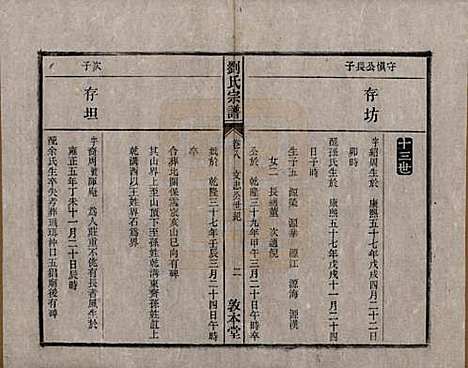 十三世
守慎公長子
存坊
字紹周生於 康熙五十七年戊戌四月二十二日
卯時
配孫氏生於 康熙五十七年戊戌十一月二十四
日子時
生子五 源榮 源華 源江 源海 源漢
女二 長適蕭 次適倪
公於 乾隆三十九年甲午三月二十日午時卒
劉氏宗譜
卷八 文忠公世紀
二
敦本堂
於 乾隆三十七年壬辰三月二十四日午時
卒
合葬北關保 家亥山巳向有碑
其山界上至山頂下至孫姓缸上
乾溝西以王姓界石為界
次子
存坦
字裔周號暉庵 為人莊重不佻有長者風生於
雍正五年丁未十一月二十日辰時
配余氏生卒失考葬 仲口五猖廟後有碑